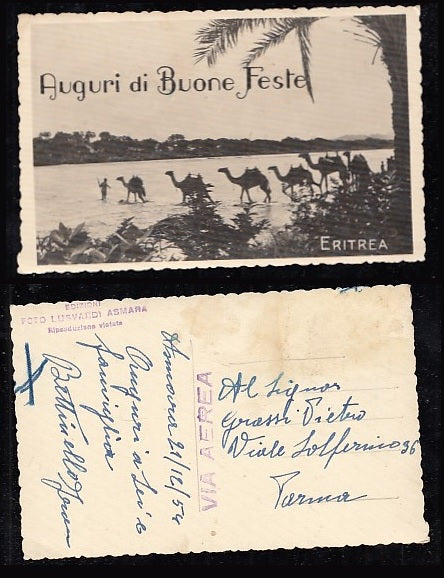 Auguri di Buone Feste
ERITREA
EDIZIONI
FOTO LUSVARDI ASMARA
Riproduzione vietata
Asmara 21/12/54
Auguri a Lei e
famiglia
Bettinello
VIA AEREA
Al Signor
Grassi Pietro
Viale Solferino 36
Parma